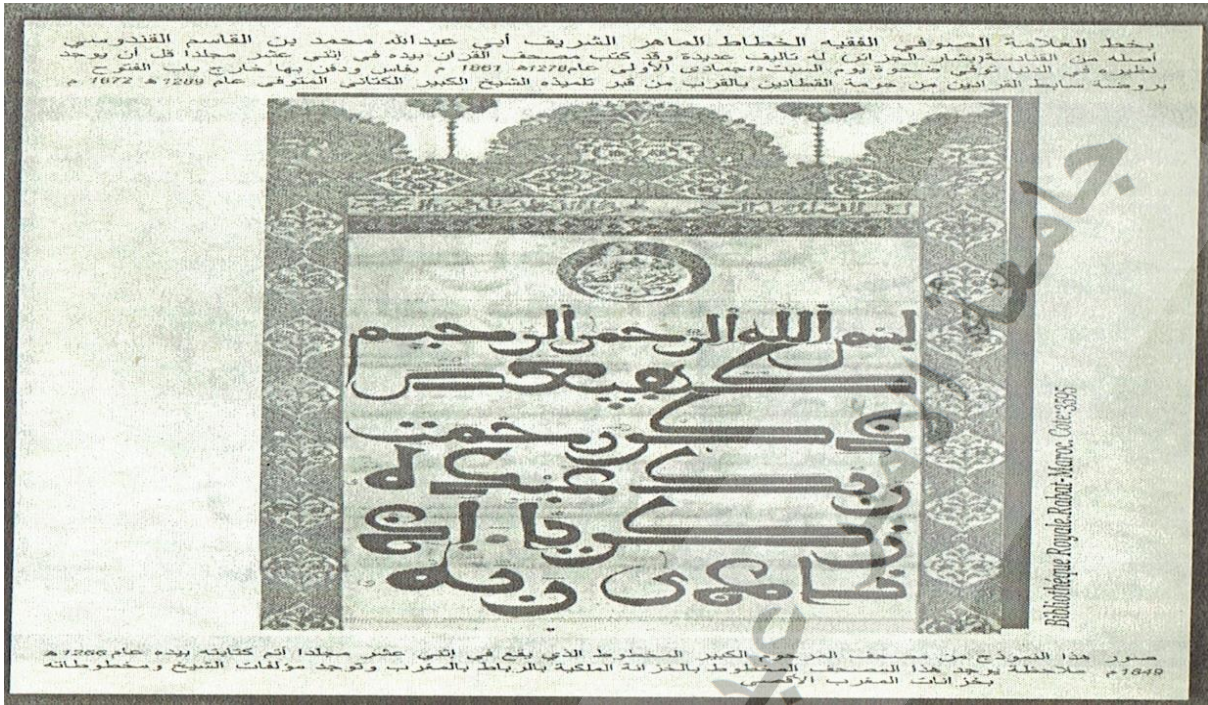 بخط العلامة الصوفي الفقيه الخطاط الماهر الشريف أبي عبدالله محمد بن القاسم القندوسي
أصله من القنادسة(بشار.الجزائر) له تأليف عديدة وقد كتب مصحف القرآن بيده في إثني عشر مجلدا قل أن يوجد
نظيره في الدنيا توفي ضحوة يوم السبت جمادى الأولى عام 1278ه 1861 م بفاس ودفن بها خارج باب الفتوح
بروضة سابط القرادين من حومة القطانين بالقرب من قبر تلميذه الشيخ الكبير الكتاني المتوفى عام 1289 ه 1872 م
بسم الله الرحمن الرحيم
كهيعص
ذكر رحمت
ربك عبده
زكريا إذ
نادى ربه
Bibliothéque Royale.Rabat-Maroc. Cote:3595
صور هذا النموذج من مصحف المرحوم الكبير المخطوط الذي يقع في إثني عشر مجلدا أتم كتابته بيده عام 1266 ه
1849م ملاحظة يوجد هذا المصحف المخطوط بالخزانة الملكية بالرباط بالمغرب وتوجد مؤلفات الشيخ ومخطوطاته
بخزانات المغرب الأقصى